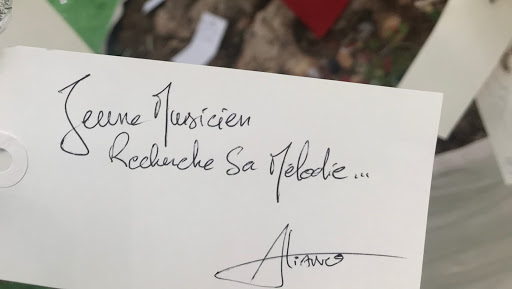 Jeune Musicien
Recherche Sa Mélodie...